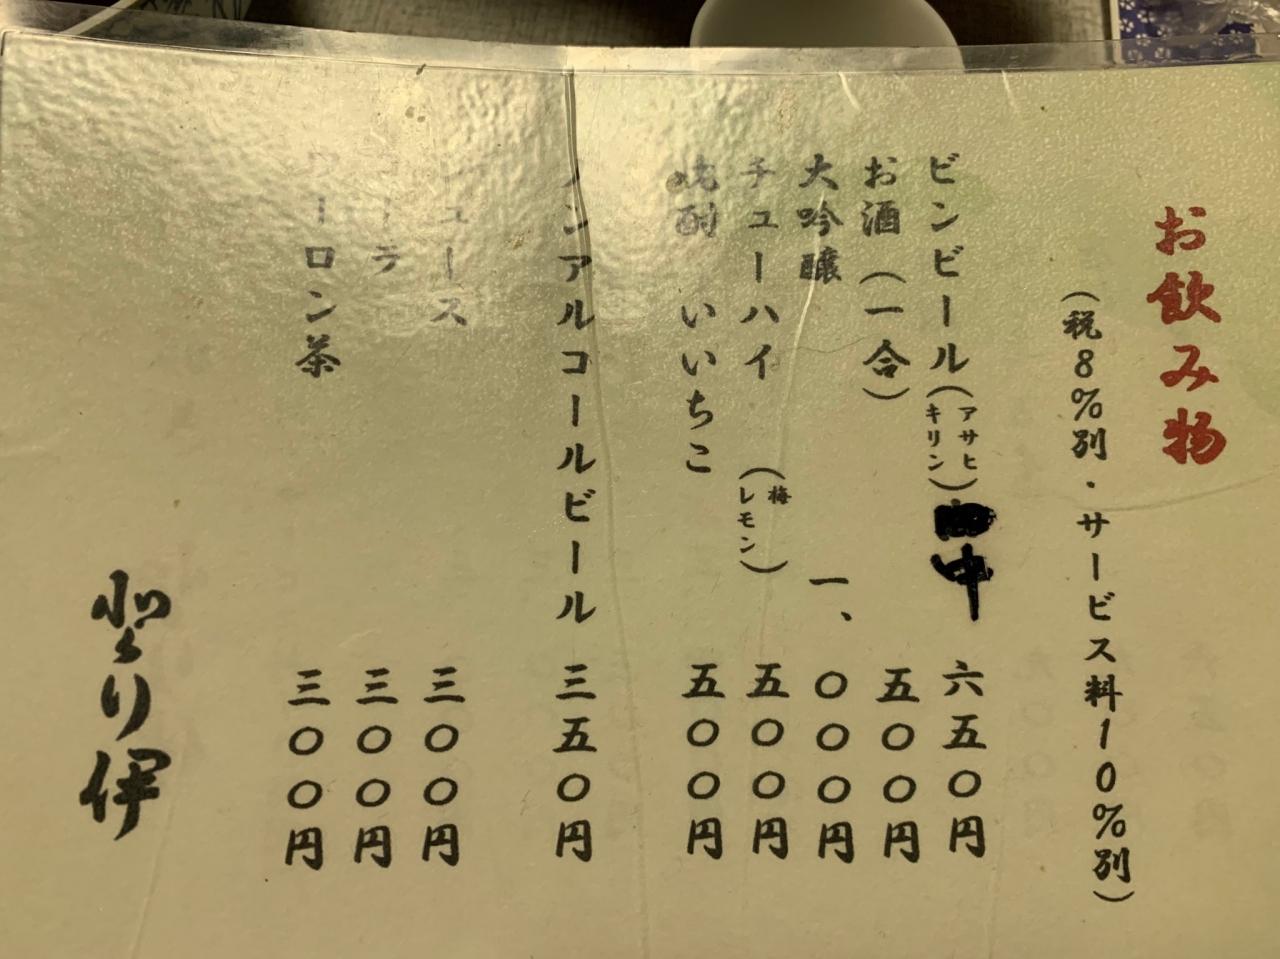 お飲み物
（税8％別・サービス料10％別）
ビンビール（アサヒ キリン）中 六五〇円
お酒（一合） 五〇〇円
大吟醸 一、〇〇〇円
チューハイ（梅 レモン） 五〇〇円
焼酎 いいちこ 五〇〇円
ノンアルコールビール 三五〇円
ジュース 三〇〇円
コーラ 三〇〇円
ウーロン茶 三〇〇円